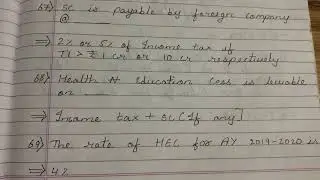 67) SC is payable by foreign company
@ ________
⇒) 2% or 5% of Income tax if
TI > ₹ 1 cr or 10 cr respectively
68) Health & Education Cess is leviable
on ____
⇒) Income tax + SC (If any)
69) The rate of HEC for AY 2019-2020 is
⇒) 4%